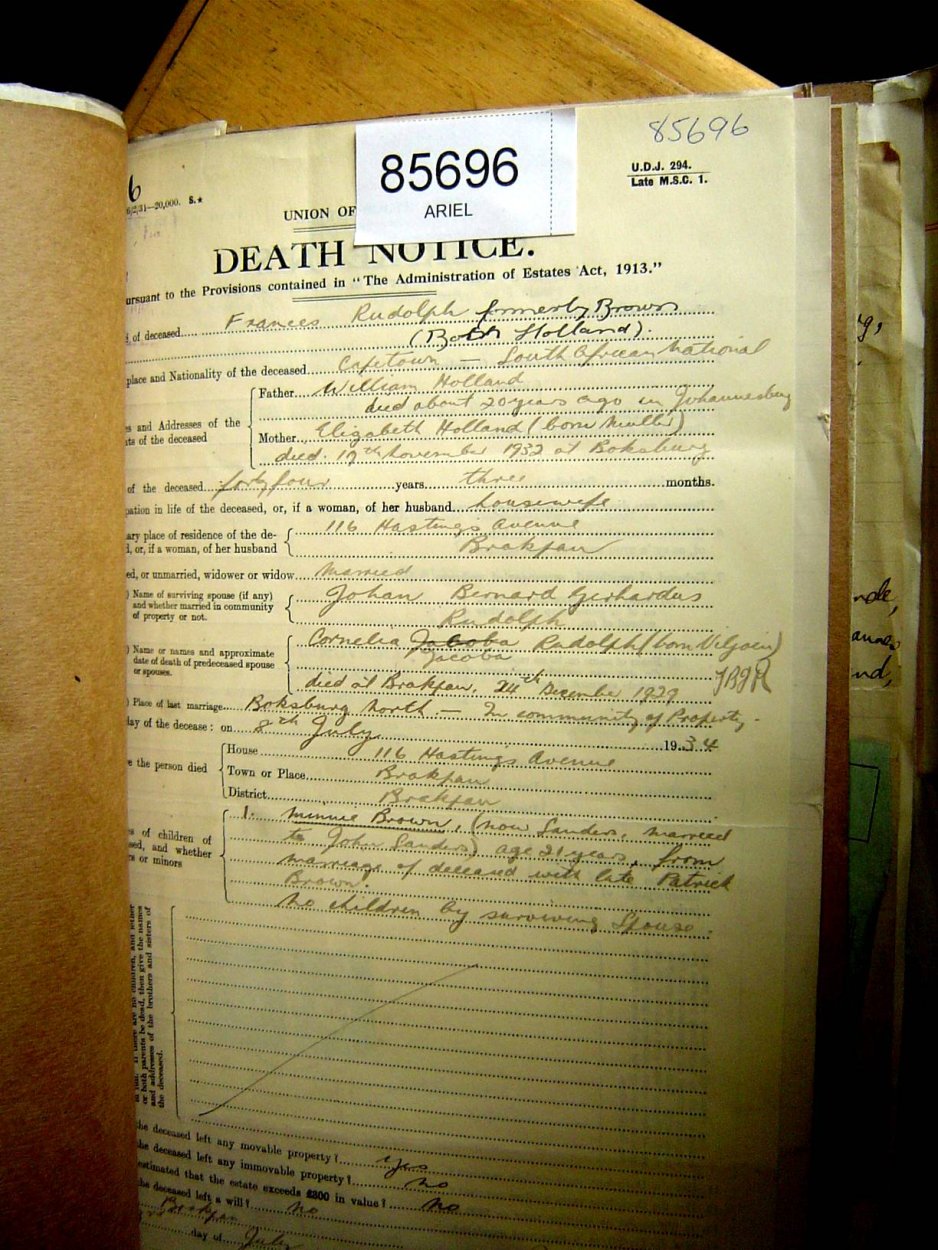 85696
85696
ARIEL
U.D.J. 294.
Late M.S.C. 1.
6
31—20,000. S.★
UNION OF
DEATH NOTICE.
ursuant to the Provisions contained in “The Administration of Estates Act, 1913.”
of deceased Frances Rudolph formerly Brown
(Born Holland).
place and Nationality of the deceased Capetown — South African National
Father William Holland
died about 20 years ago in Johannesburg
s and Addresses of the
ts of the deceased
Mother Elizabeth Holland (born Muller)
died. 19th November 1932 at Boksburg
of the deceased forty four years three months.
pation in life of the deceased, or, if a woman, of her husband housewife
ary place of residence of the de-
d, or, if a woman, of her husband
116 Hastings Avenue
Brakpan
ed, or unmarried, widower or widow married
) Name of surviving spouse (if any)
and whether married in community
of property or not.
Johan Bernard Gerhardus
Rudolph
) Name or names and approximate
date of death of predeceased spouse
or spouses.
Cornelia Jacoba Rudolph (born Viljoen)
Jacoba
died at Brakpan, 24th December 1929 JBGR
) Place of last marriage Boksburg North — In community of Property.
ay of the decease: on 8th July 1934
e the person died
House 116 Hastings Avenue
Town or Place Brakpan
District Brakpan
s of children of
sed, and whether
rs or minors
1. Minnie Brown, (now Sanders, married
to John Sanders) age 21 years, from
marriage of deceased with late Patrick
Brown.
No children by surviving Spouse.
or both parents be dead, then give the names
and addresses of the brothers and sisters of
the deceased.
he deceased left any movable property? yes
he deceased left any immovable property? no
estimated that the estate exceeds £300 in value? no
he deceased left a will? no
Brakpan
day of July